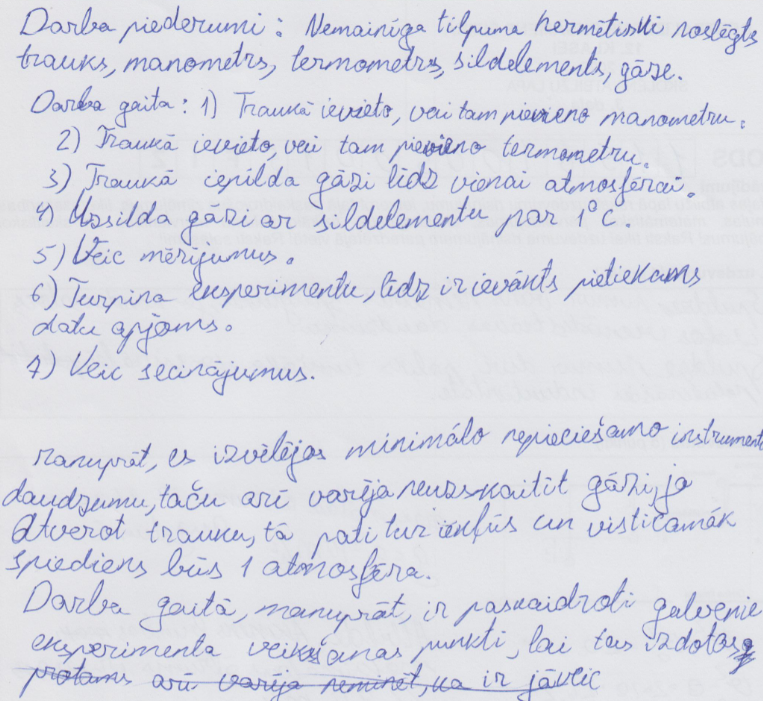 Darba piederumi: Nemainīga tilpuma hermētiski noslēgts
trauks, manometrs, termometrs, sildelements, gāze.
Darba gaita: 1) Traukā ievieto, vai tam pievieno manometru.
2) Traukā ievieto, vai tam pievieno termometru.
3) Traukā iepilda gāzi līdz vienai atmosfērai.
4) Uzsilda gāzi ar sildelementu par 1°C.
5) Veic mērījumus.
6) Turpina eksperimentu, līdz ir ievākts pietiekams
datu apjoms.
7) Veic secinājumus.
manuprāt, es izvēlējos minimālo nepieciešamo instrument
daudzumu, taču arī varēja neuzskaitīt gāzi, ja
atverot trauku, tā pati tur ienāks un visticamāk
spiediens būs 1 atmosfēra.
Darba gaitā, manuprāt, ir paskaidroti galvenie
eksperimenta veikšanas punkti, lai tas izdotos,
protams arī varēja neminēt, ka ir jāveic